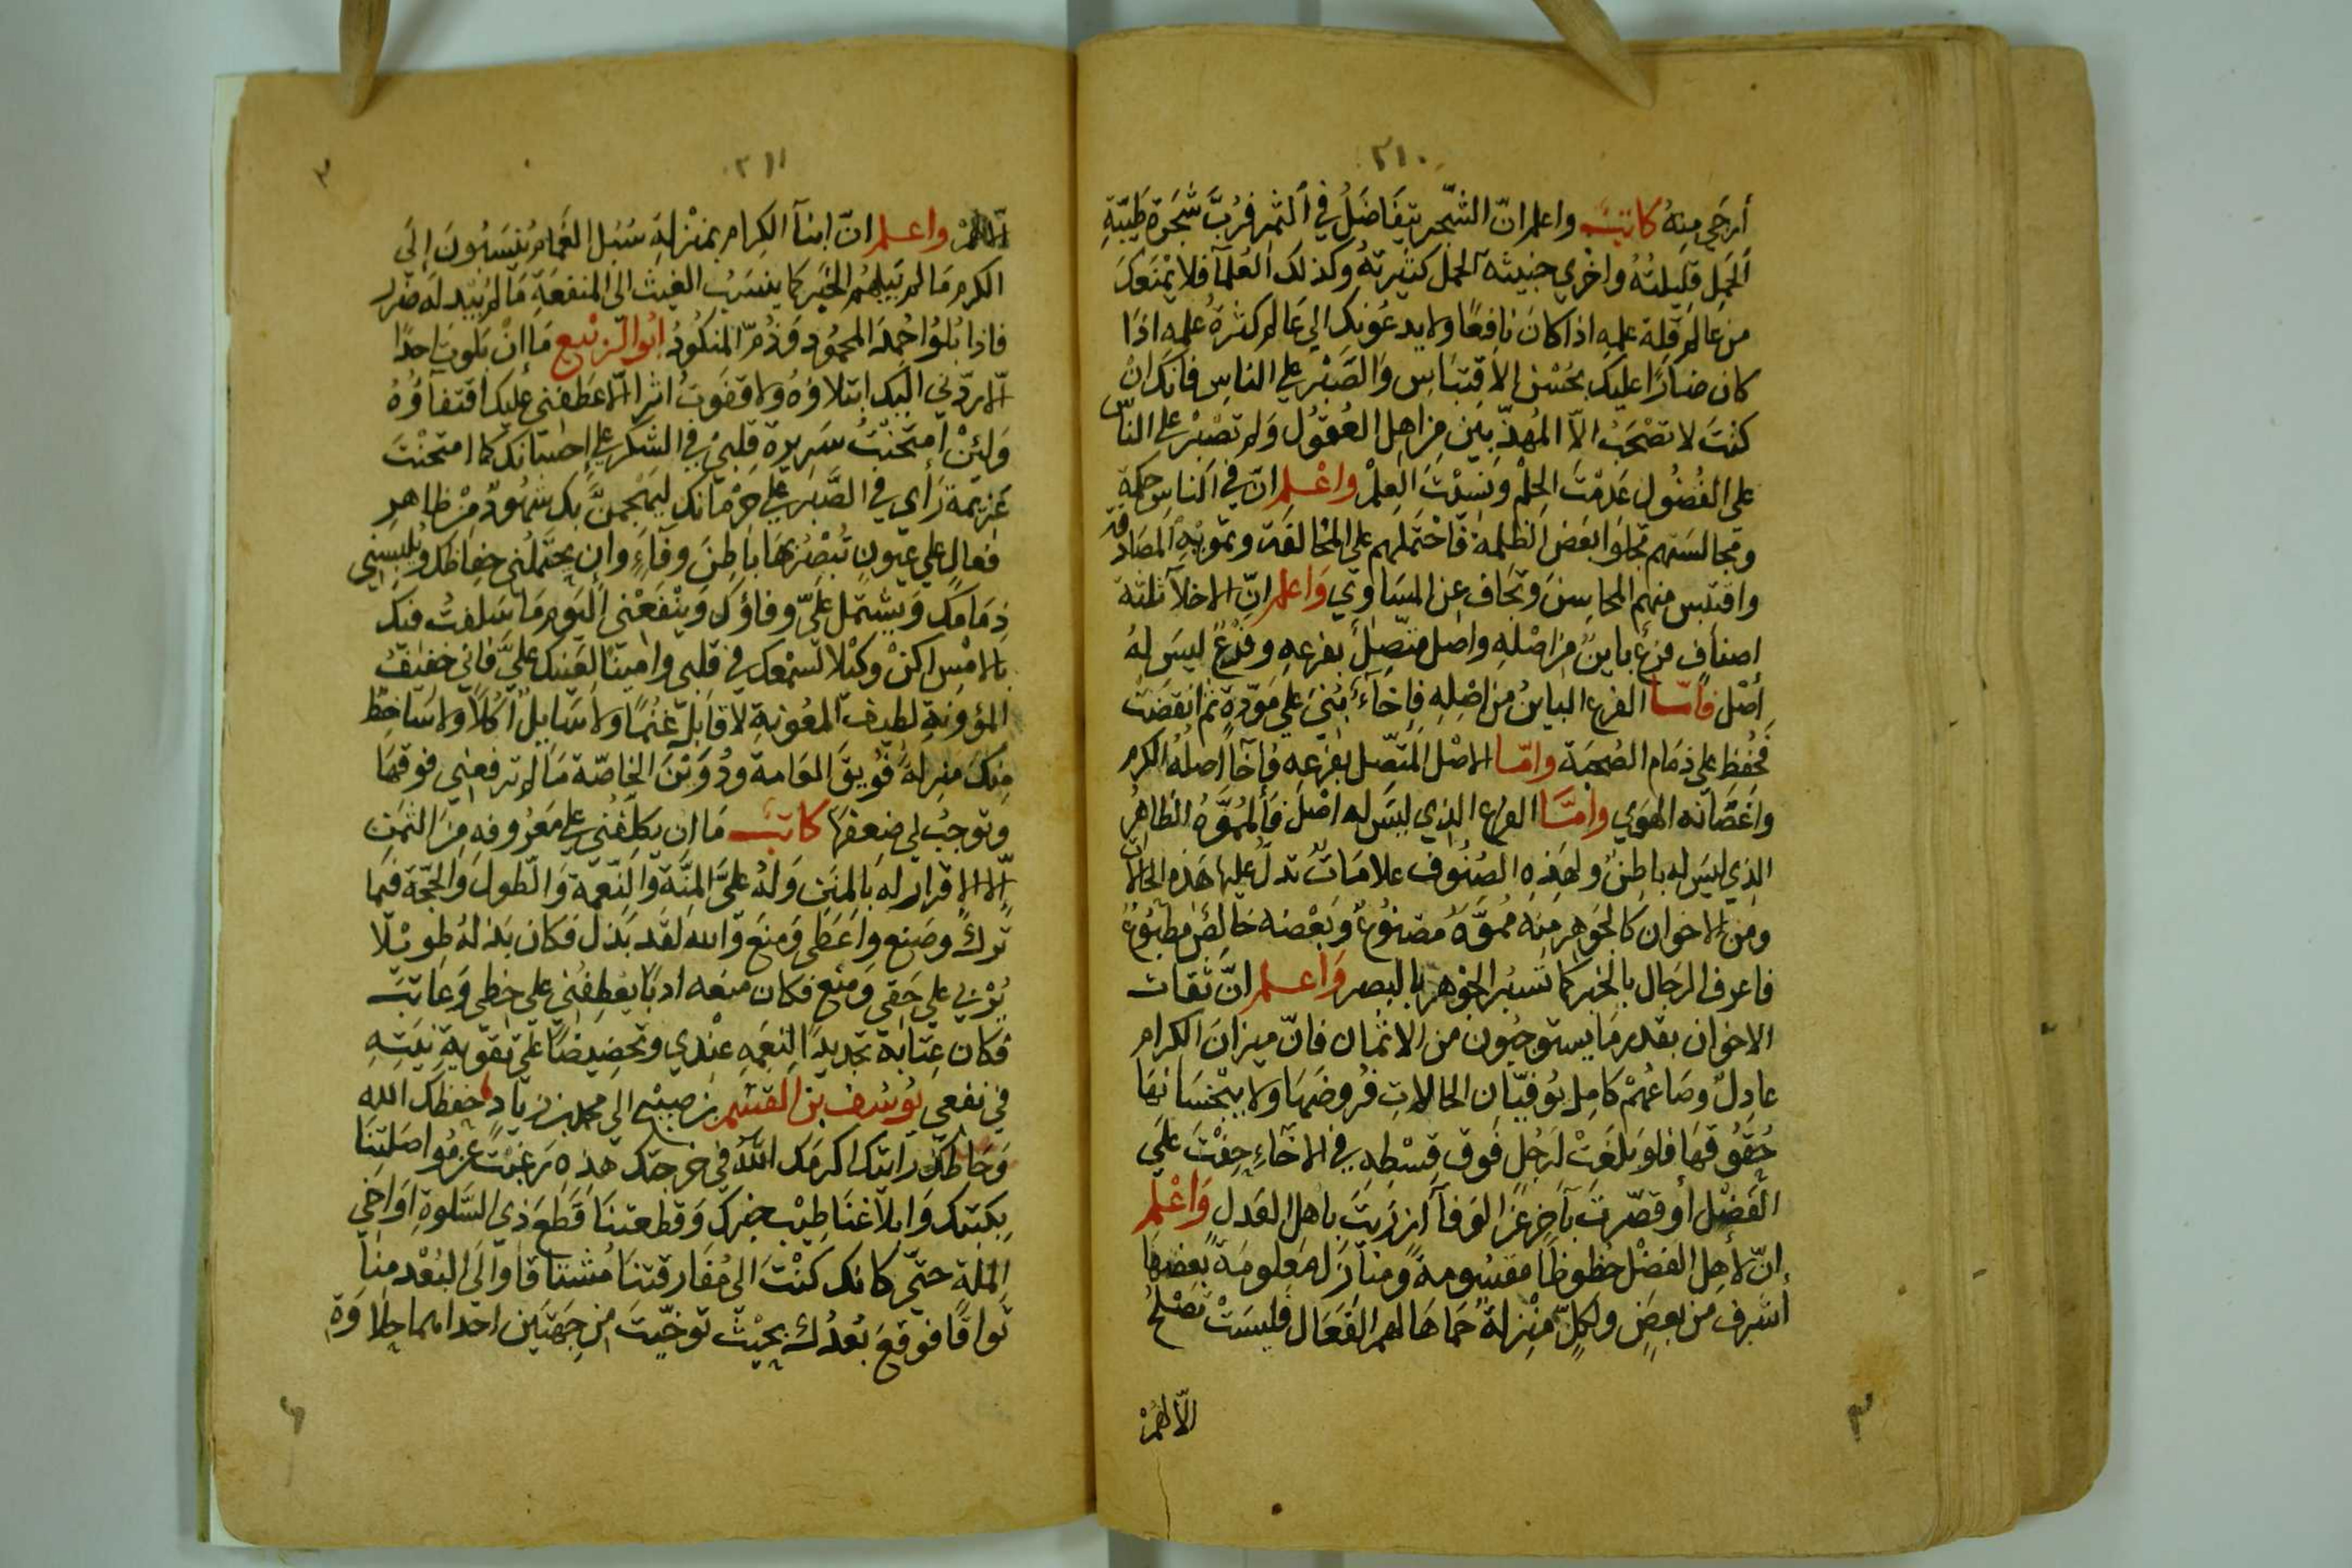 ٢١٠
أرجى منه كاتب واعلم انّ الشجر يتفاضل في الثمر فربّ شجرة طيّبة
الحمل قليلته واخرى خبيثة الحمل كثيرته وكذلك العلمآ فلا يمنعك
من عالم قلة علمه اذا كان نافعًا ولا يدعونك الى عالم كثرة علمه اذا
كان ضارًا عليك بحسن الاقتباس والصبر على الناس فانك ان
كنت لا تصحب الّا المهذّبين من اهل العقول ولم تصبر على الناس
على الفضول عدمت الحلم ونسيت العلم واعلم انّ في الناس حكمة
وبمجالستهم تجلوا بعض الظلمة فاحتملهم على المخالقة وتمويه المصادقة
واقتبس منهم المحاسن وتجاف عن المساوي واعلم انّ الاخلآ ثلثة
اصناف فرع باين من اصله واصل متّصل بفرعه وفرع ليس له
اصل فامّا الفرع الباين من اصله فاخآء بني على مودّة ثم انقضت
فحفظ على ذمام الصحبة وامّا الاصل المتّصل بفرعه فاخآ اصله الكرم
واغصانه الهوى وامّا الفرع الذي ليس له اصل فالمموّه الظاهر
الذي ليس له باطن ولهذه الصنوف علامات تدلّ عليها هذه الحالات
ومن الاخوان كالجوهر منه مموّه مصنوع وبعضه خالص مطبوع
فاعرف الرجال بالخبر كما تسبر الجوهر بالبصر واعلم انّ ثقات
الاخوان بقدر ما يستوجبون من الاثمان فانّ ميزان الكرام
عادل وصاعهم كامل يوفّيان الحالات فروضها ولا يبخسانها
حقوقها فلو بلغت لرجل فوق قسطه في الاخآء حفت على
الفضل أو قصّرت بآخر عن الوفآ ازريت باهل العدل واعلم
انّ لأهل الفضل حظوظًا مقسومة ومنازل معلومة بعضها
أشرف من بعض ولكلّ منزلة حماها لهم الفعال فليست تصلح
الّا لهم
٣
٢١١
٣
الّا لهم واعلم انّ ابنآ الكرام بمنزلة سبل الغمام ينسبون الى
الكرم ما لم يبلهم الخبر كما ينسب الغيث الى المنفعة ما لم يبد له ضرر
فاذا بلوا حمد المحمود وذمّ المنكود ابو الربيع ما ان بلوت احدًا
الّا ردّني اليك ابتلاؤه ولا قفوت اثرا الّا عطفني عليك اقتفآؤه
ولئن امتحنت سريرة قلبي في الشكر على احسانك كما امتحنت
عزيمة رأي في الصبر على حرمانك ليهجمنّ بك شهود من ظاهر
فعال على عيون تبصر بها باطن وفآء وان يحتملني حفاظك ويلبسني
ذمامك ويشتمل عليّ وفاؤك وينفعني اليوم ما سلفت منك
بالامس اكن وكيلا لسمعك في قلبي وامينا لعينك عليّ فاني خفيف
المؤونة لطيف المعونة لا قابل غنمًا ولا سايل اكلًا ولا ساخط
منك منزلة فويق العامة ودوين الخاصّة ما لم ترفعني فوقها
وتوجب لي ضعفها كاتب ما ان يكلّفني على معروفه من الثمن
الّا الاقرار له بالمنن وله عليّ المنّة والنعمة والطول والحجّة فيما
ترك وصنع واعطى ومنع والله لقد بذل فكان بذله طويلا
يزري على حقي ومنع فكان منعه ادبًا يعطفني على حظي وعاتب
فكان عتابه تجديدا لنعمه عندي وتحضيضًا على تقوية نيته
في نفعي يوسف بن القسم بن صبيح الى محمد بن زياد حفظك الله
وحاطك رايتك اكرمك الله في خرجتك هذه رغبت عن مواصلتنا
بكتبك وابلاغنا طيب خبرك وقطعتنا قطع ذي السلوة اواخي
الملة حتّى كانك كنت الى مفارقتنا مشتاقا والى البعد منا
تواقًا فوقع بعدك بحيث توخّيت من جهتين احداهما حلاوة